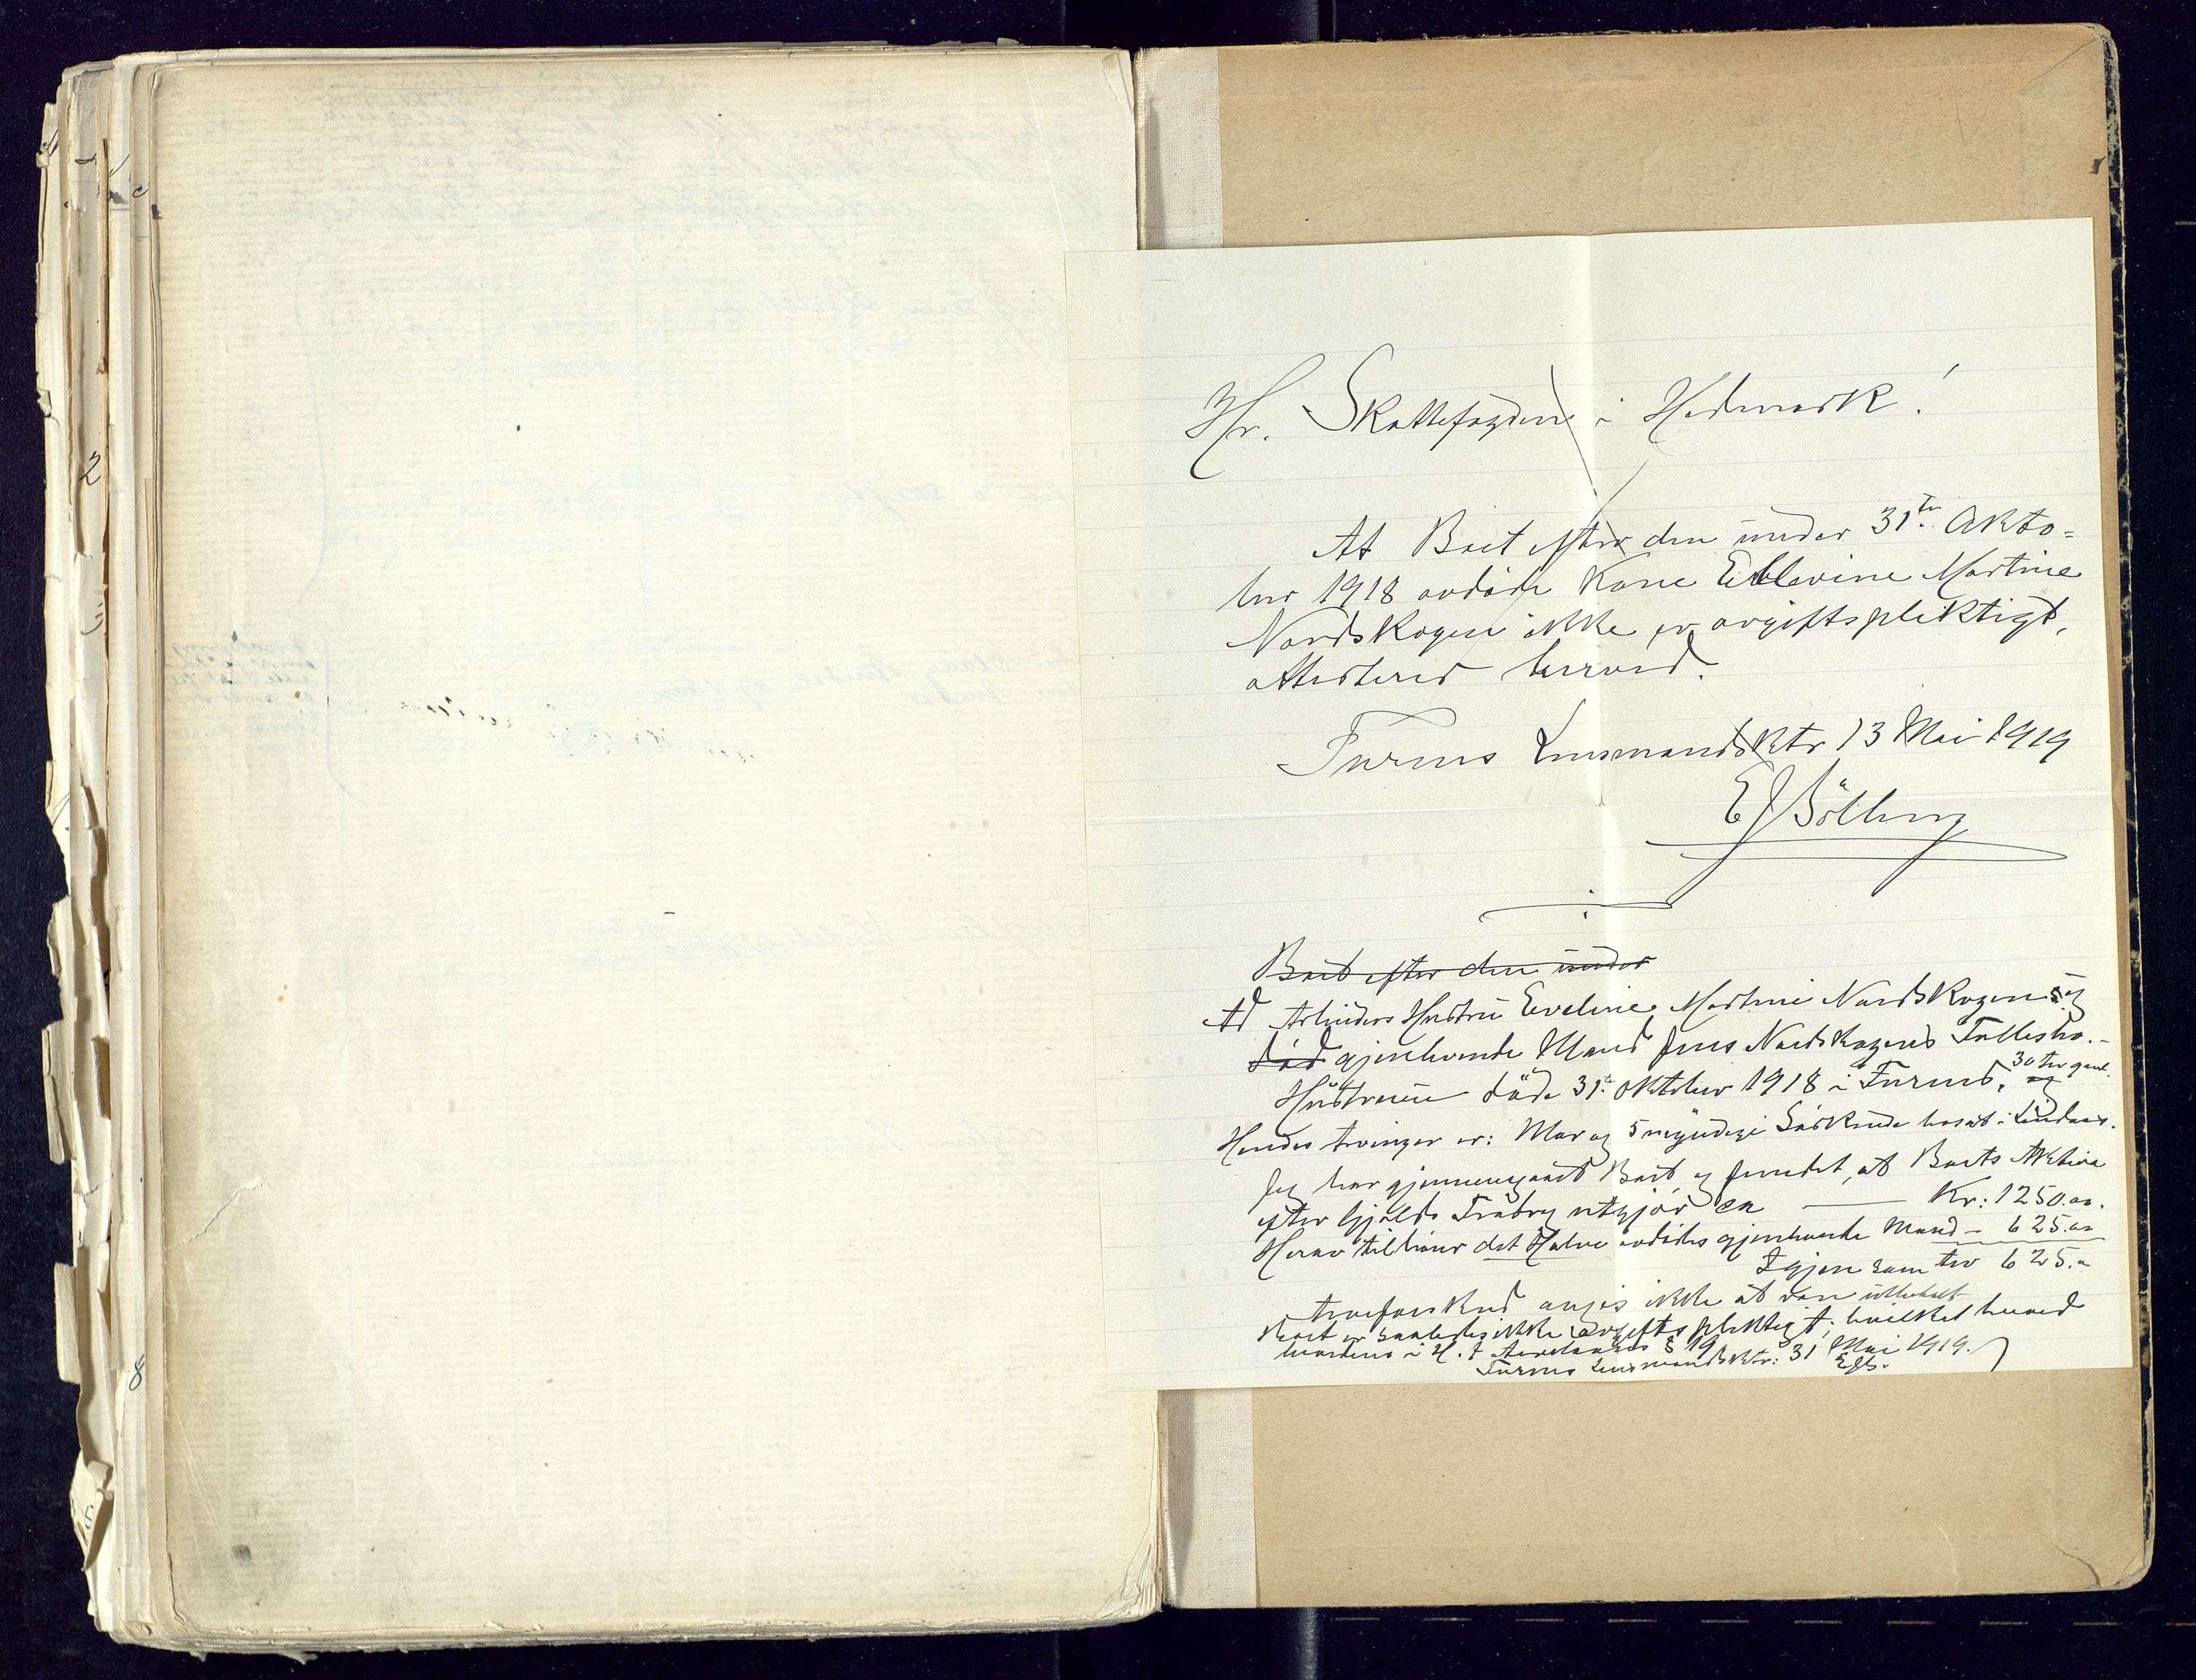 Hr. Skattefogden i Hedmark!
At Boet efter den under 31te Okto=
ber 1918 avdöde Kone Eblevine Martine
Nordskogen ikke er avgiftspliktigt,
attesteres herved.
Furnes Lensmandsktr 13 Mai 1919
EJSölling
Boet efter den under
Ad Arbeiders Hustru Eveline Martine Nordskogens og
död gjenlevende Mand Jens Nordskogens Fællesbo.-
Hustruen döde 31te Oktober 1918 i Furnes, 30 Aar gml.
Hendes Arvinger er: Mor og 5 myndige Söskende bosat i
Jeg har gjennemgaaet Boet og fundet, at Boets Aktiva
efter Gjælds Fradrag utgjör ca — Kr: 1250.oo.
Herav tilhörer det Halve avdödes gjenlevende Mand - 625.oo
Igjen som Arv 625.-
Arveforskud angis ikke at være utbetalt
Boet er saaledes ikke avgiftspliktigt; hvilket herved
i H. t Arvelovens § 19
Furnes Lensmandsktr: 31 Mai 1919.
EJS.
2
8